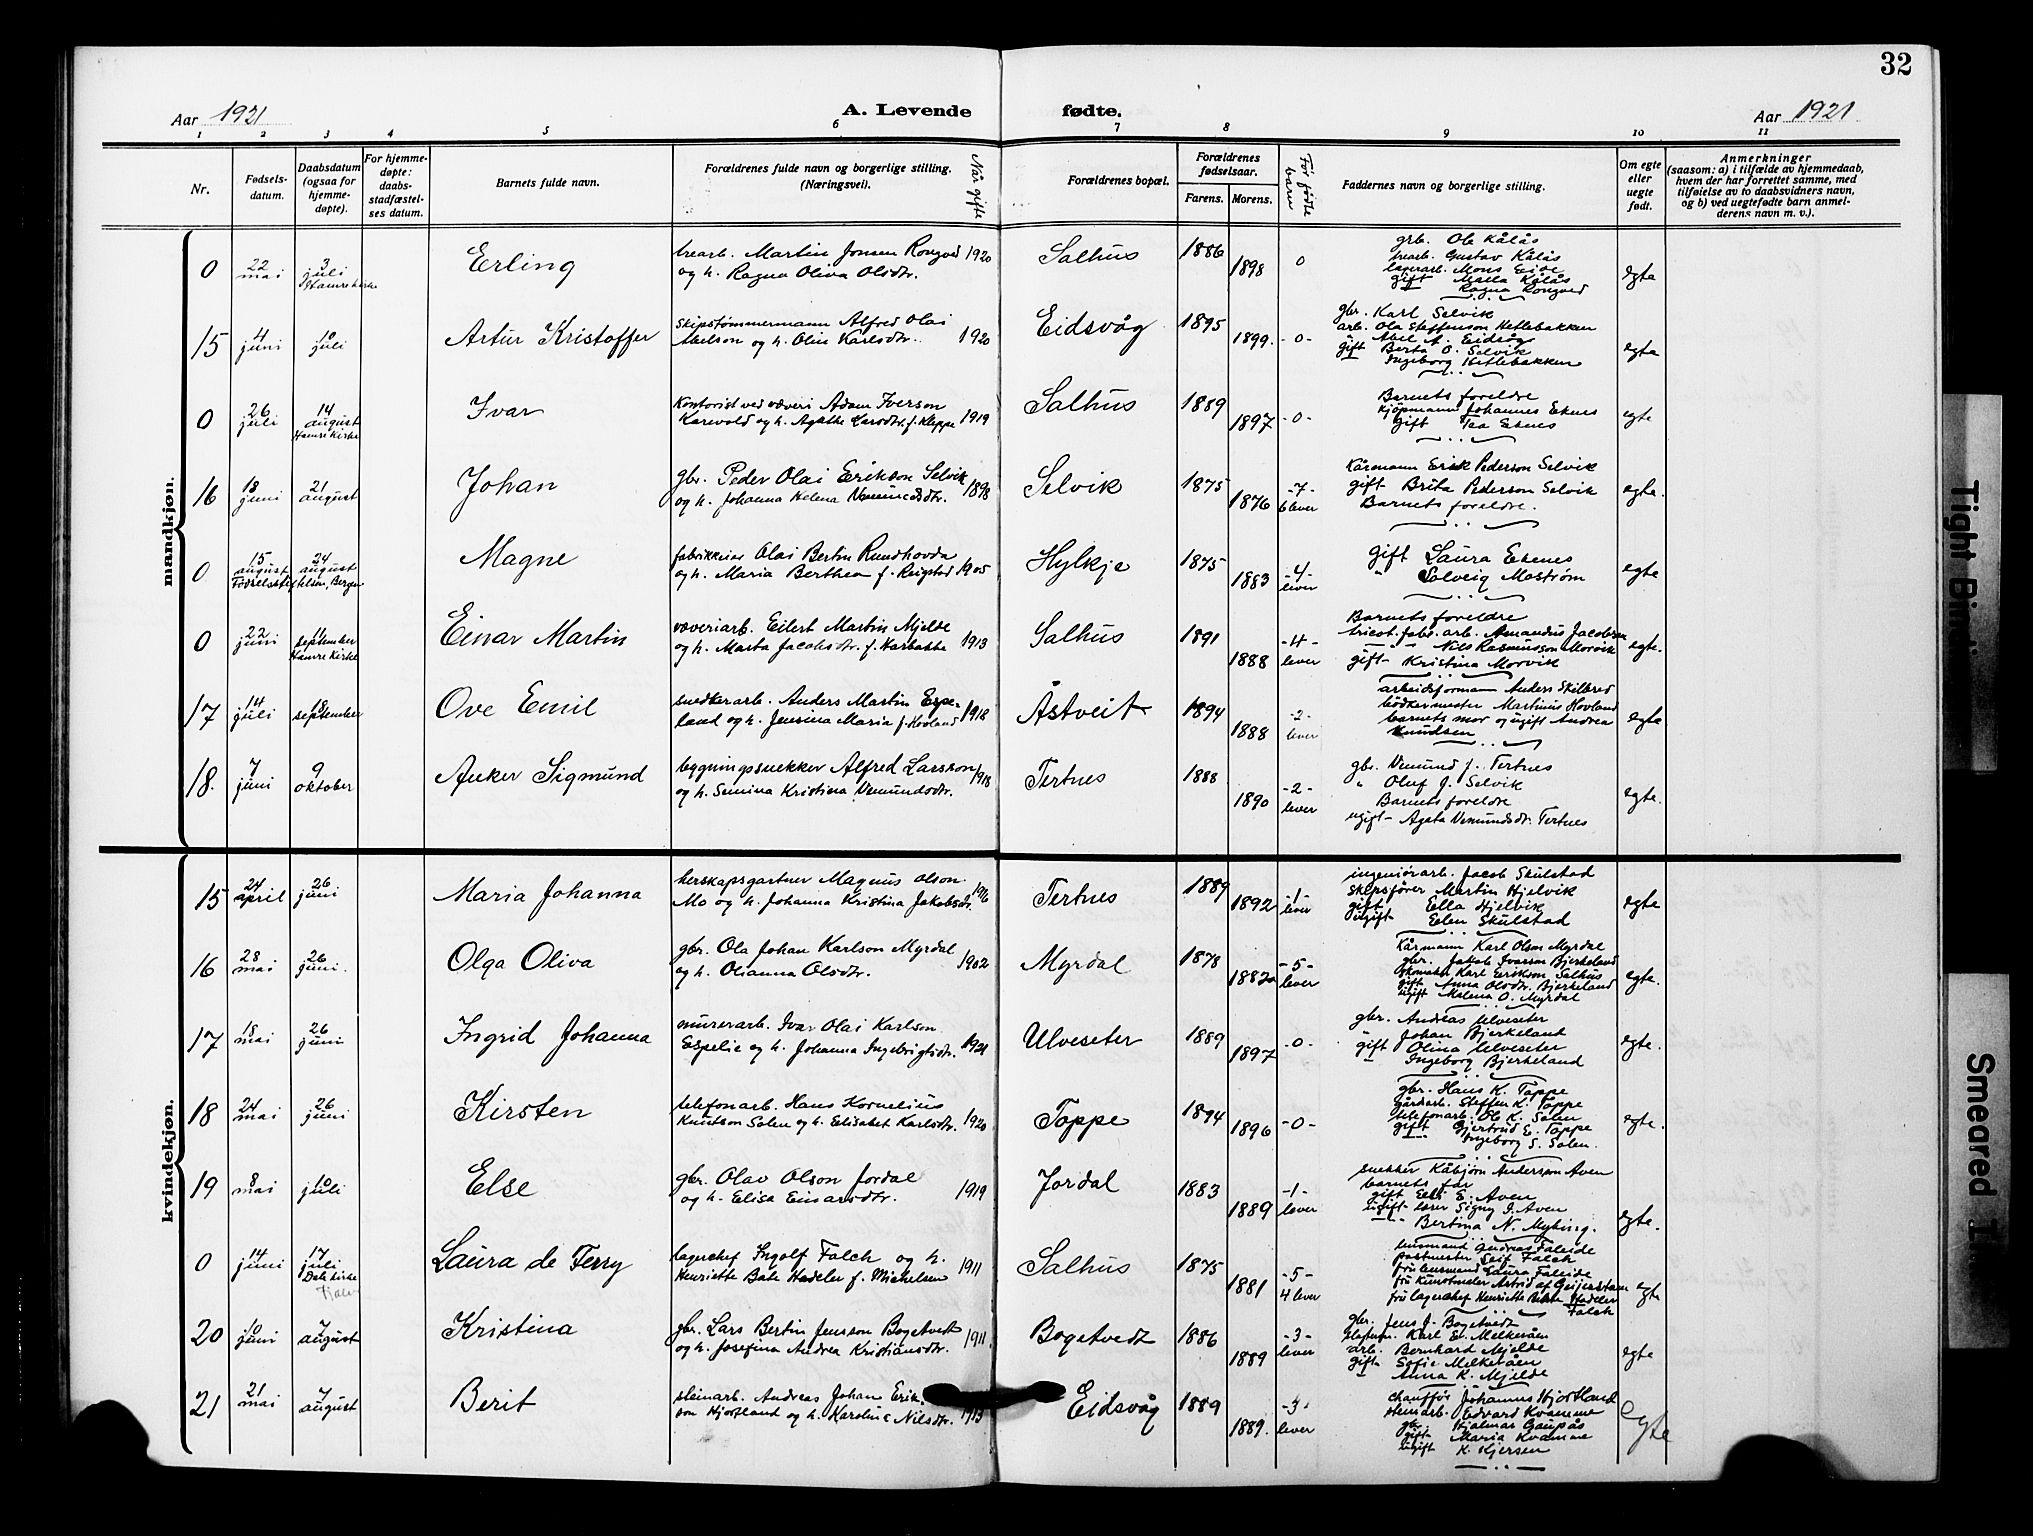 32
Aar 1921 A. Levende fødte. Aar 1921
1 2 3 4 5 6 7 8 9 10 11
Nr. Fødsels-datum. Daabsdatum (ogsaa for hjemme-døpte). For hjemme-døpte: daabs-stadfæstel-ses datum. Barnets fulde navn. Forældrenes fulde navn og borgerlige stilling. (Næringsvei). Når gifte Forældrenes bopæl. Forældrenes fødselsaar. Farens. Morens. Før fødte barn Faddernes navn og borgerlige stilling. Om egte eller uegte født. Anmerkninger (saasom: a) i tilfælde av hjemmedaab, hvem der har forrettet samme, med tilføielse av to daabsvidners navn, og b) ved uegtefødte barn anmel-derens navn m. v.).
mandkjøn.
0 22 mai 3 juli Hamre kirke Erling Martin Jonsen Rongved og h. Ragna Oliva Olsdtr. 1920 Salhus 1886 1898 0 grb. Ole Kålås
Gustav Kålås
Mons Eide
gift Malla Kålås
Ragna Rongved egte
15 4 juni 10 juli Artur Kristoffer Skipstømmermann Alfred Olai Abelson og h. Olin Karlsdtr. 1920 Eidsvåg 1895 1899. -0- gbr. Karl Selvik
arb. Ola Steffenson Hetlebakken
Abel A. Eidsvåg
gift Berta O. Selvik
Ingeborg Hetlebakken egte
0 26 juli 14 august Hamre Kirke Ivar Kontorist ved væveri Adam Iverson Karevold og h. Agathe Larsdtr. f. Kleppe 1919 Salhus 1889 1897 -0- Barnets foreldre
Kjøpmann Johannes Eknes
gift Tea Eknes egte
16 18 juni 21 august Johan gbr. Peder Olai Erikson Selvik og h. Johanna Helena Vemundsdtr. 1898 Selvik 1875 1876 -7- 6 lever Kårmann Erik Pederson Selvik
gift Brita Pederson Selvik
Barnets foreldre. egte.
0 15 august 24 august Fødselsstiftelsen, Bergen Magne fabrikkeier Olai Bertin Rundhovde og h. Maria Berthea f. Reigstad 1905 Hylkje 1875 1883 -4- lever gift Laura Eknes
" Solveig Mostrøm egte
0 22 juni 11 september Hamre Kirke Einar Martin væveriarb. Eilert Martin Mjelde og h. Marta Jacobsdtr. f. Harbakke 1913 Salhus 1891 1888 -4- lever Barnets foreldre
tricot. fabr. arb. Amandus Jacobsen
Nils Rasmusson Morvik
gift Kristina Morvik egte.
17 14 juli 18 september Ove Emil snedkerarb. Anders Martin Espeland og h. Jensina Maria f. Hovland 1918 Åstveit 1894 1888 -2- lever arbeidsformann Anders Skilbred
bødkermester Martinus Hovland
barnets mor og ugift Andrea
Knudsen egte
18. 7 juni 9 oktober Anker Sigmund bygningssnekker Alfred Larsson og h. Semina Kristina Vemundsdtr. 1918 Tertnes 1888 1890 -2- lever gbr. Vemund J. Tertnes
" Oluf J. Selvik
Barnets foreldre
ugift - Agata Vemundsdtr. Tertnes egte.
kvindekjøn.
15 24 april 26 juni Maria Johanna herskapsgartner Magnus Olson Mo og h. Johanna Kristina Jakobsdtr. 1916 Tertnes 1889 1892 -1- lever ingeniørarb. Jacob Skulstad
Skipsfører Martin Hjelvik
gift Ella Hjelvik
ugift Elen Skulstad egte
16 28 mai 26 juni. Olga Oliva gbr. Ola Johan Karlson Myrdal og h. Olianna Olsdtr. 1902 Myrdal 1878 1882 -5- lever Kårmann Karl Olson Myrdal
gbr. Jakob Ivarson Bjerkeland
Karl Erikson Salhus
gift Anna Olsdtr. Bjerkeland
ugift Malena O. Myrdal egte.
17 18 mai 26 juni Ingrid Johanna murerarb. Ivar Olai Karlson Espelie og h. Johanna Ingebrigtsdtr. 1921 Ulveseter 1889 1897 -0- gbr. Andreas Ulveseter
Johan Bjerkeland
gift Olina Ulveseter
Ingeborg Bjerkeland egte.
18 24 mai 26 juni Kirsten telefonarb. Hans Kornelius Knutson Solen og h. Elisabet Karlsdtr. 1920 Toppe 1894 1896 -0- gbr. Hans K. Toppe
gårdarb. Steffen K. Toppe
telefonarb. Ole K. Solen
gift Gjertrud E. Toppe
Ingeborg S. Solen. egte.
19 8 mai 10 juli Else gbr. Olav Olson Jordal og h. Elisa Einarsdtr. 1919 Jordal 1883 1889 -1- lever snekker Kåbjørn Anderson Aven
barnets far
gift Elli E. Aven
ugift Signy J. Aven
Bertina N. Myking. egte.
0 14 juni 17 juli Dale kirke Laura de Ferry lagerchef Ingolf Falch og h. Henriette Bøle Hadeler f. Michelsen 1911 Salhus 1875 1881 -5- 4 lever lensmand Andreas Faleide
postmester Leif Falch
fru lensmand Laura Faleide
fru Kunstmaler Astrid af Geijerstam
fru lagerchef Henriette Hadeler
Falch egte
20 10 juni 7 august Kristina gbr. Lars Bertin Jensson Bogetvedt og h. Josefina Andrea Kristiansdtr. 1911 Bogetvedt 1886 1889 -3- lever gbr. Jens J. Bogetvedt
Karl E. Melkeråen
arb. Bernhard Mjelde
gift Sofie Melkeråen
Anna K. Mjelde egte
21 21 mai 7 august Berit steinarb. Andreas Johan Erikson Hjortland og h. Karoline Nilsdtr. 1913 Eidsvåg 1889 1889. lever chauffør Johannes Hjortland
steinarb. Edvard Kvamme
gbr. Hjalmar Gaupås
gift Maria Kvamme
ugift K. Kjersen egte
Tight Bin
Smeared